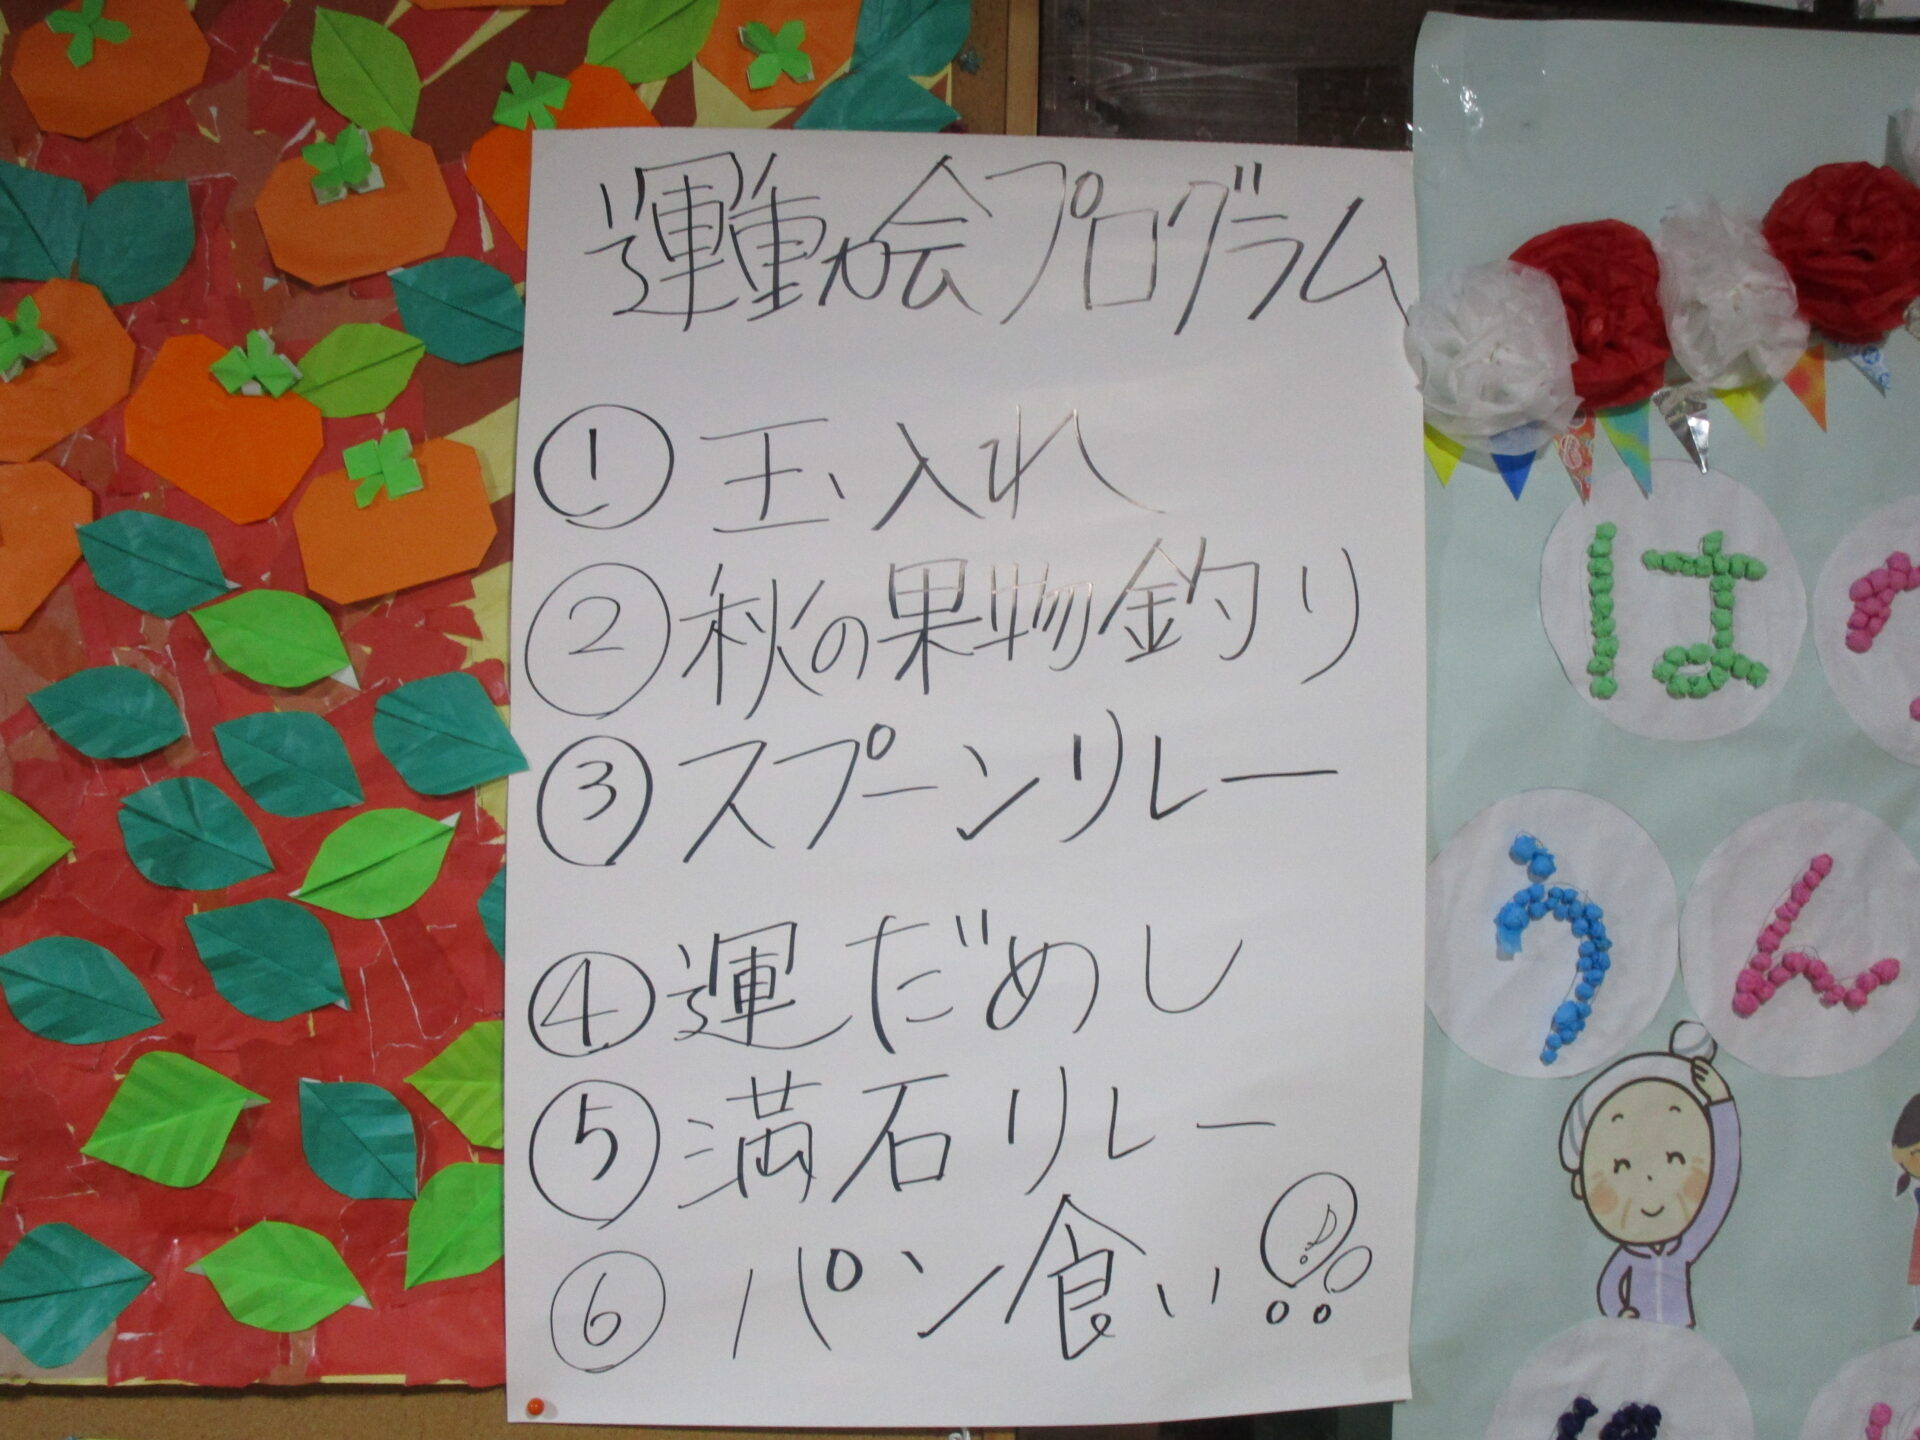 運動会プログラム
① 玉入れ
② 秋の果物釣り
③ スプーンリレー
④ 運だめし
⑤ 満石リレー
⑥ パン食い
は
うん